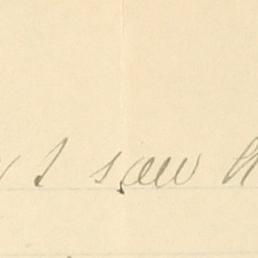 I saw